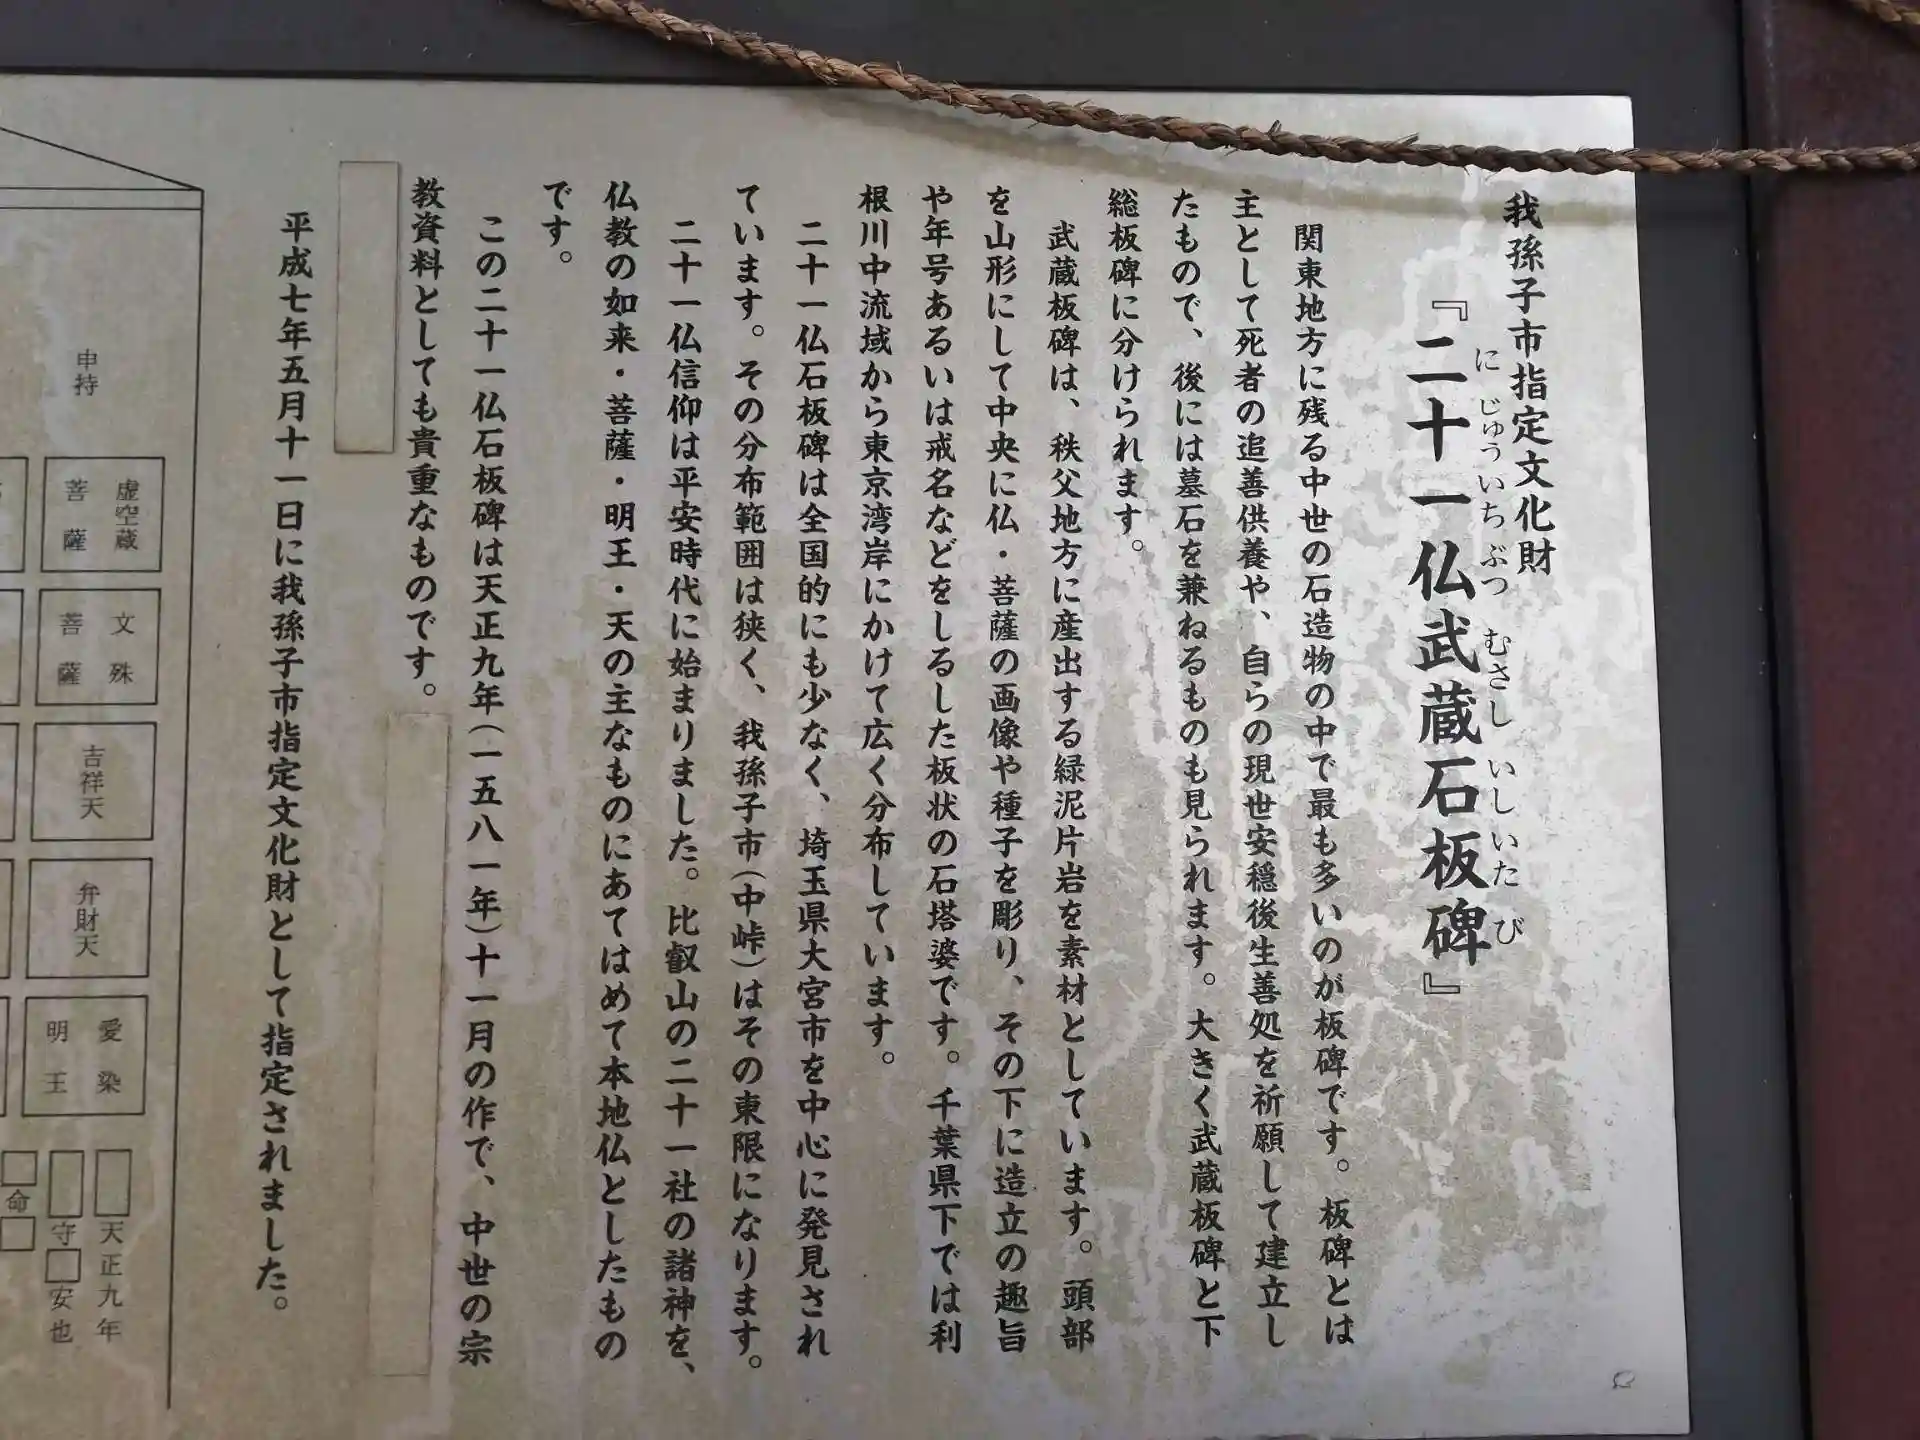 我孫子市指定文化財
『二十一仏武蔵石板碑』
にじゅういちぶつ むさし いしいたび
関東地方に残る中世の石造物の中で最も多いのが板碑です。板碑とは
主として死者の追善供養や、自らの現世安穏後生善処を祈願して建立し
たもので、後には墓石を兼ねるものも見られます。大きく武蔵板碑と下
総板碑に分けられます。
武蔵板碑は、秩父地方に産出する緑泥片岩を素材としています。頭部
を山形にして中央に仏・菩薩の画像や種子を彫り、その下に造立の趣旨
や年号あるいは戒名などをしるした板状の石塔婆です。千葉県下では利
根川中流域から東京湾岸にかけて広く分布しています。
二十一仏石板碑は全国的にも少なく、埼玉県大宮市を中心に発見され
ています。その分布範囲は狭く、我孫子市(中峠)はその東限になります。
二十一仏信仰は平安時代に始まりました。比叡山の二十一社の諸神を、
仏教の如来・菩薩・明王・天の主なものにあてはめて本地仏としたもの
です。
この二十一仏石板碑は天正九年(一五八一年)十一月の作で、中世の宗
教資料としても貴重なものです。
平成七年五月十一日に我孫子市指定文化財として指定されました。
申待
虚空蔵
菩薩
文殊
菩薩
吉祥天
弁財天
愛染
明王
□天正九年
□守□安也
□命□